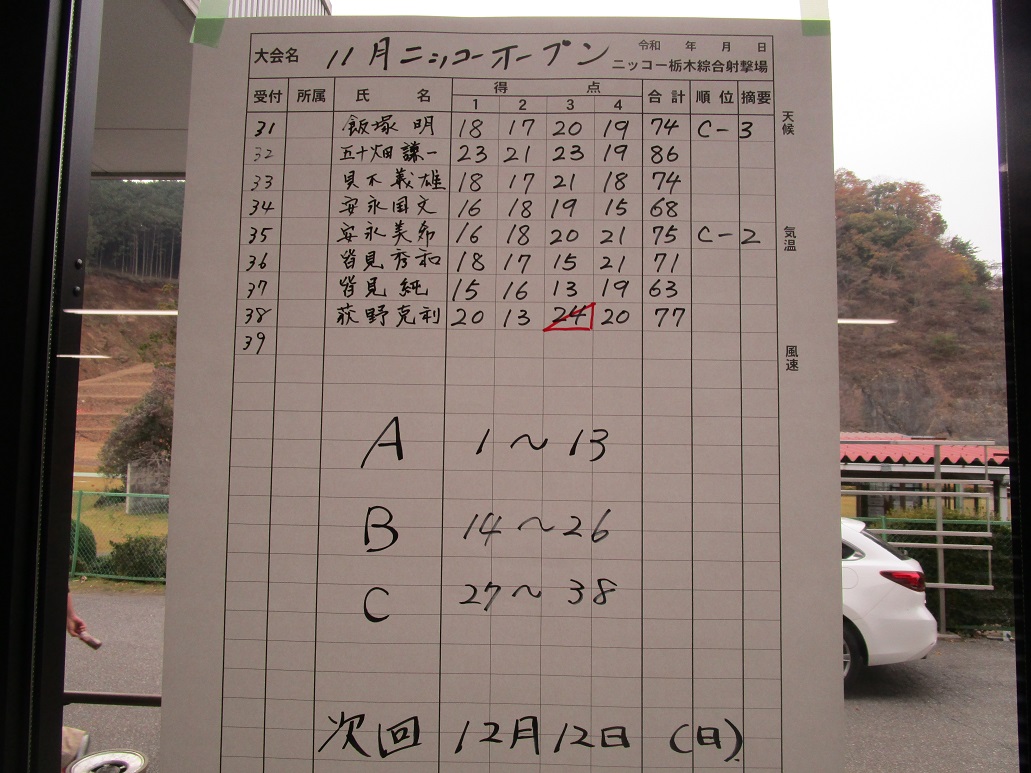 大会名 11月ニッコーオープン 令和 年 月 日
ニッコー栃木綜合射撃場
受付 所属 氏 名 得 点 合計 順位 摘要
1 2 3 4
天候
31 飯塚 明 18 17 20 19 74 C-3
32 五十畑 譲一 23 21 23 19 86
33 貝木 義雄 18 17 21 18 74
34 安永国文 16 18 19 15 68
気温
35 安永美希 16 18 20 21 75 C-2
36 皆見秀和 18 17 15 21 71
37 皆見 純 15 16 13 19 63
38 荻野克利 20 13 24 20 77
39
風速
A 1~13
B 14~26
C 27~38
次回 12月12日 (日)